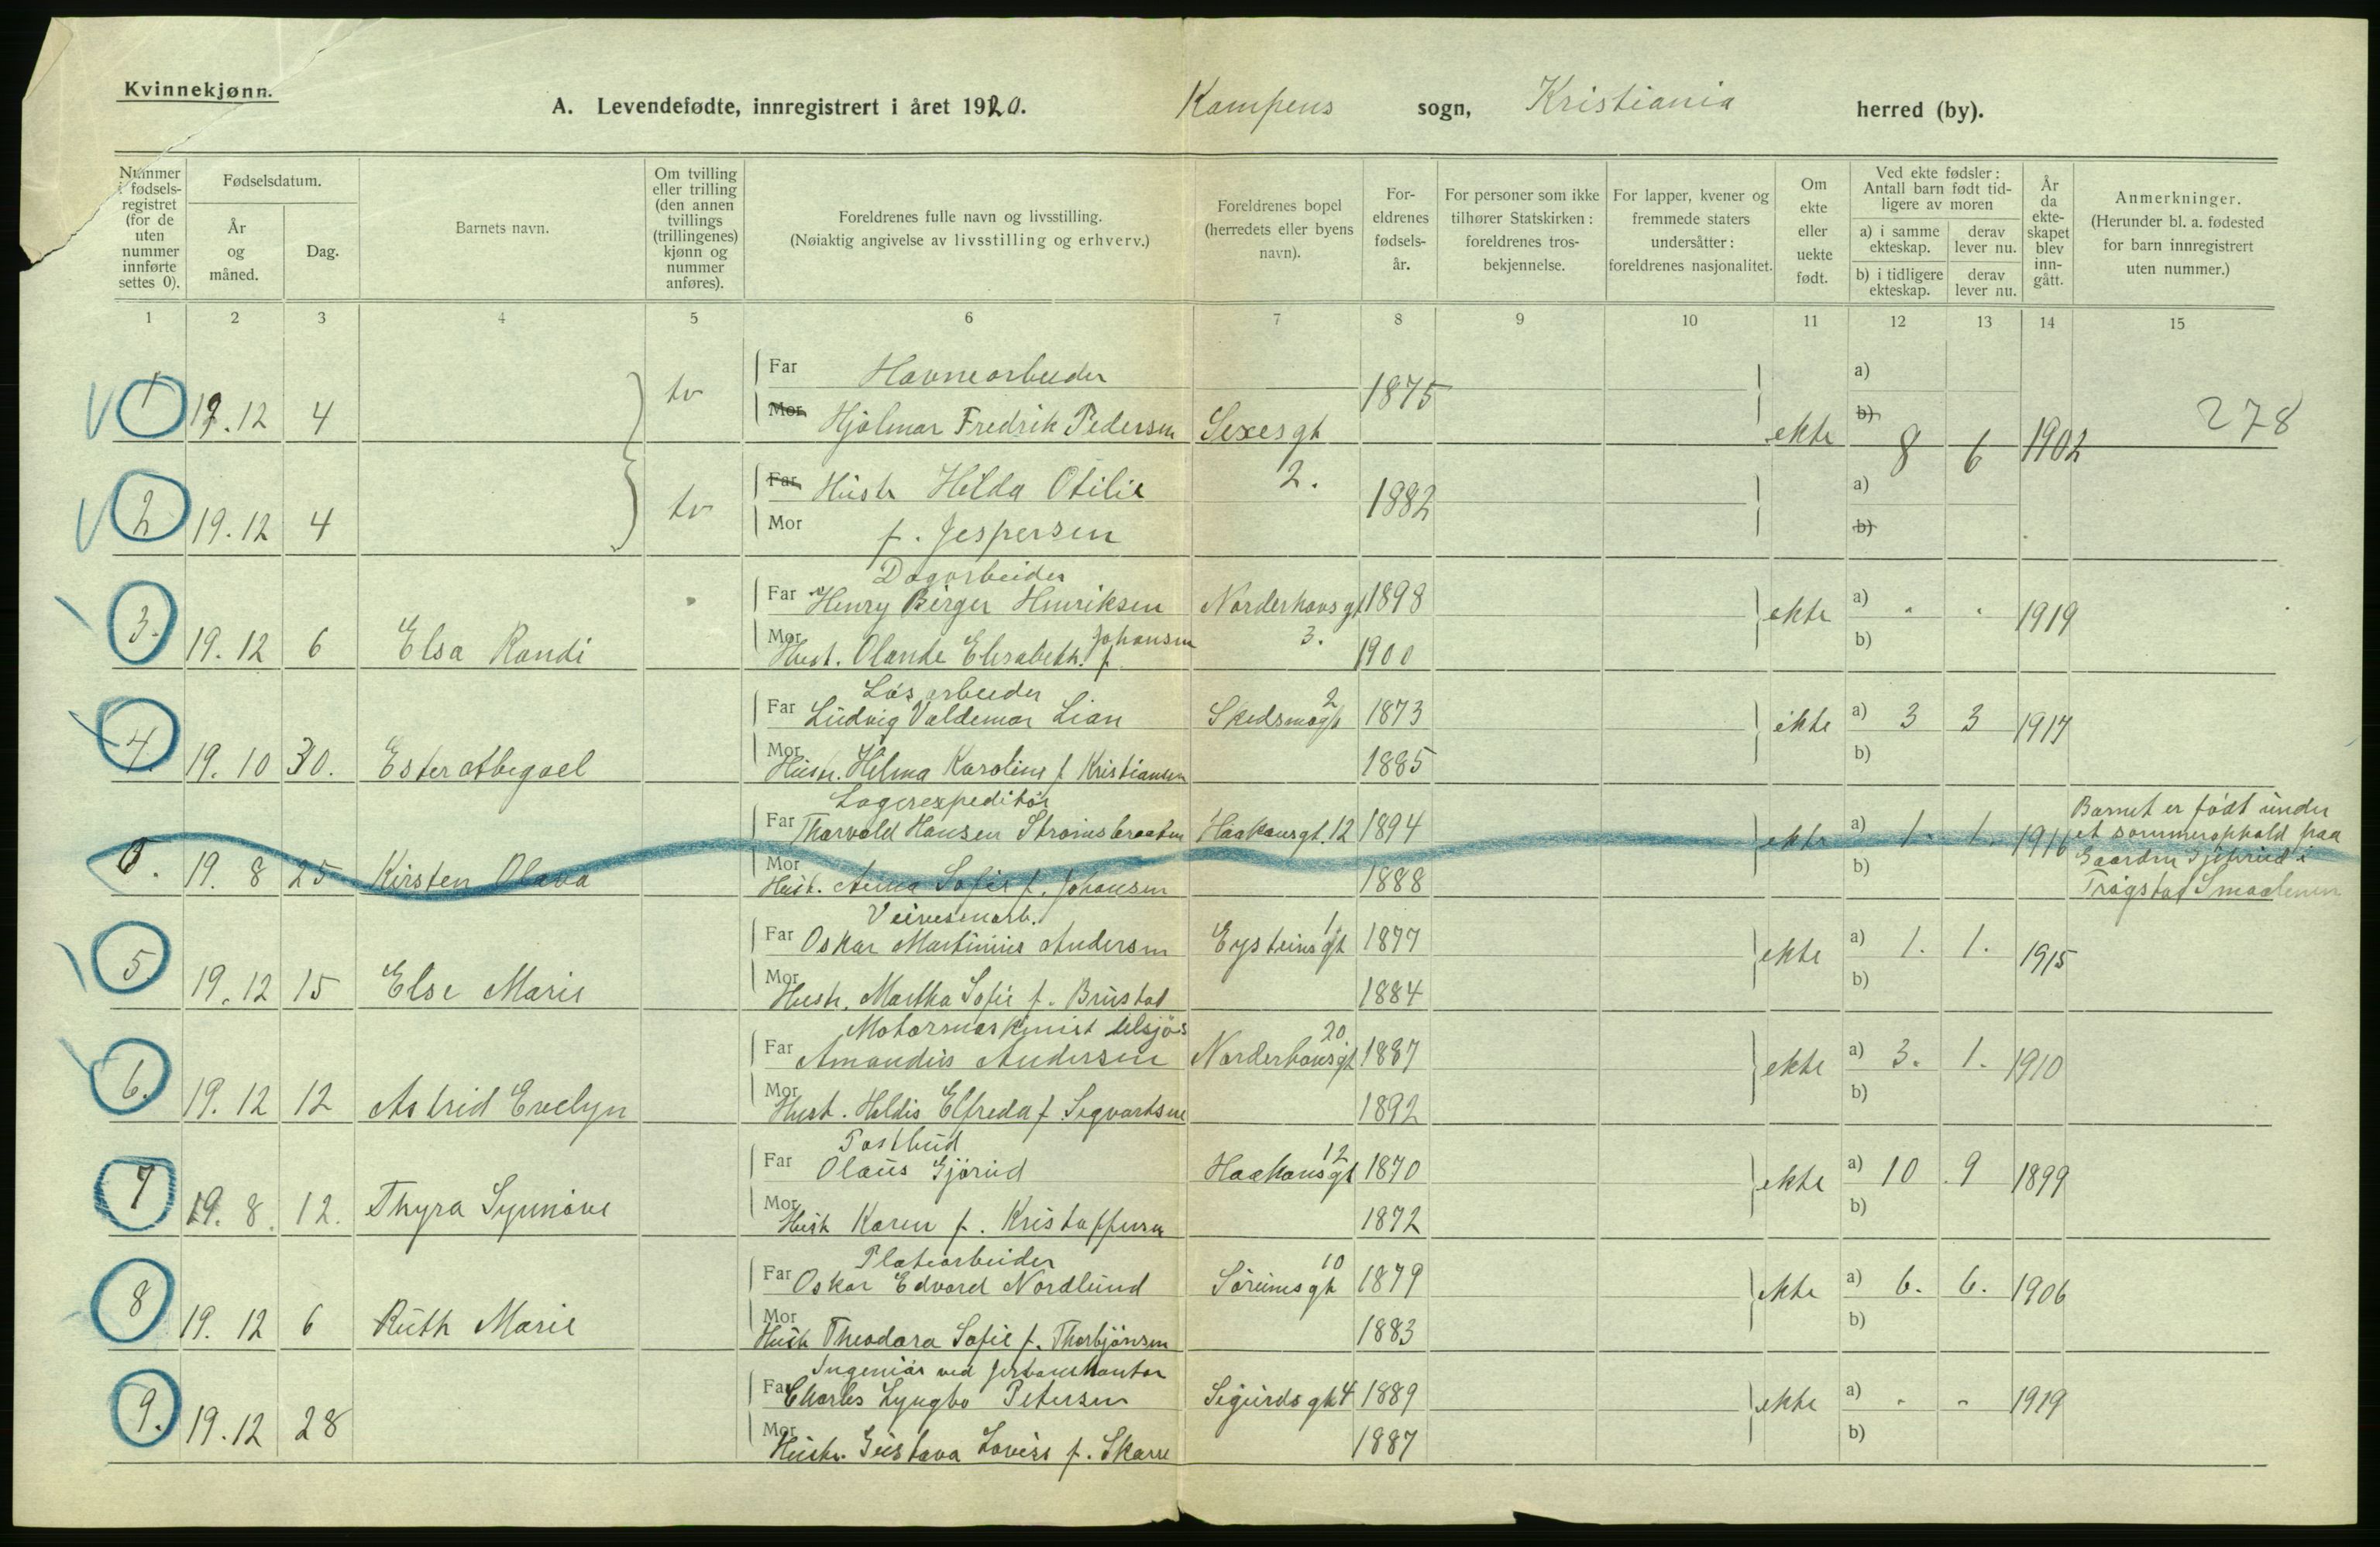 Kvinnekjønn.
A. Levendefødte, innregistrert i året 1920. Kampens sogn, Kristiania herred (by).
Nummer i fødsels-registret (for de uten nummer innførte settes 0).
Fødselsdatum.
År og måned.
Dag.
Barnets navn.
Om tvilling eller trilling (den annen tvillings (trillingenes) kjønn og nummer anføres).
Foreldrenes fulle navn og livsstilling.
(Nøiaktig angivelse av livsstilling og erhverv.)
Foreldrenes bopel (herredets eller byens navn).
For-eldrenes fødsels-år.
For personer som ikke tilhører Statskirken: foreldrenes tros-bekjennelse.
For lapper, kvener og fremmede staters undersåtter: foreldrenes nasjonalitet.
Om ekte eller uekte født.
Ved ekte fødsler: Antall barn født tid-ligere av moren
a) i samme ekteskap. derav lever nu.
b) i tidligere ekteskap. derav lever nu.
År da ekte-skapet blev inn-gått.
Anmerkninger.
(Herunder bl. a. fødested for barn innregistrert uten nummer.)
1 2 3 4 5 6 7 8 9 10 11 12 13 14 15
Far Havnearbeider a)
1 19.12 4 tv Mor Hjalmar Fredrik Pedersen Sexesgt 1875 ekte b) 8 6 1902 278
Far Hustr Hilda Otilie 2. 1882 a)
2 19.12 4 tv Mor f. Jespersen b)
Dagarbeider
Far Henry Birger Henriksen Norderhovsgt 1898 ekte a) " " 1919
3. 19.12 6 Elsa Randi Mor Hust. Olande Elisabeth f. Johansen 3. 1900 b)
Løsarbeider
Far Ludvig Valdemar Lian Skedsmogt 2 1873 ekte a) 3 3 1917
4. 19.10 30. Ester Abegael Mor Hustr. Helma Karoline f Kristiansen 1885 b)
Lagerexpeditør
Far Thorvald Hansen Strømsbraaten Haakonsgt. 12 1894 ekte a) 1. 1. 1916 Barnet er født under et sommerophold paa
0. 19. 8 25 Kirsten Olava Mor Hust. Anna Sofie f. Johansen 1888 b) Gaarden i Trøgstad Smaalenen
Veivesenarb.
Far Oskar Martinius Andersen Eysteinsgt 1 1877 ekte a) 1. 1. 1915
5. 19.12 15 Else Marie Mor Hustr. Martha Sofie f. Brustad 1884 b)
Motormaskinist tilsjøs
Far Amandus Andersen Norderhovsgt 20 1887 ekte a) 3. 1. 1910
6. 19.12 12 Astrid Evelyn Mor Hust. Heldis Elfreda f. Segvartsen 1892 b)
Postbud
Far Olaus Gjørud Haakonsgt 12 1870 ekte a) 10 9 1899
7 19. 8. 12. Thyra Synnøve Mor Hust Karen f. Kristoffersen 1872 b)
Platearbeider
Far Oskar Edvard Nordlund Sørumsgt 10 1879 ekte a) 6. 6. 1906
8 19. 12 6 Ruth Marie Mor Hustr Theodora Sofie f. Thorbjørnsen 1883 b)
Ingeniør ved Jerbanekontor
Far Charles Lyngbo Petersen Sigurdsgt 4 1889 ekte a) " " 1919
9. 19.12 28 Mor Hustr. Gustava Lovise f. Skarre 1887 b)